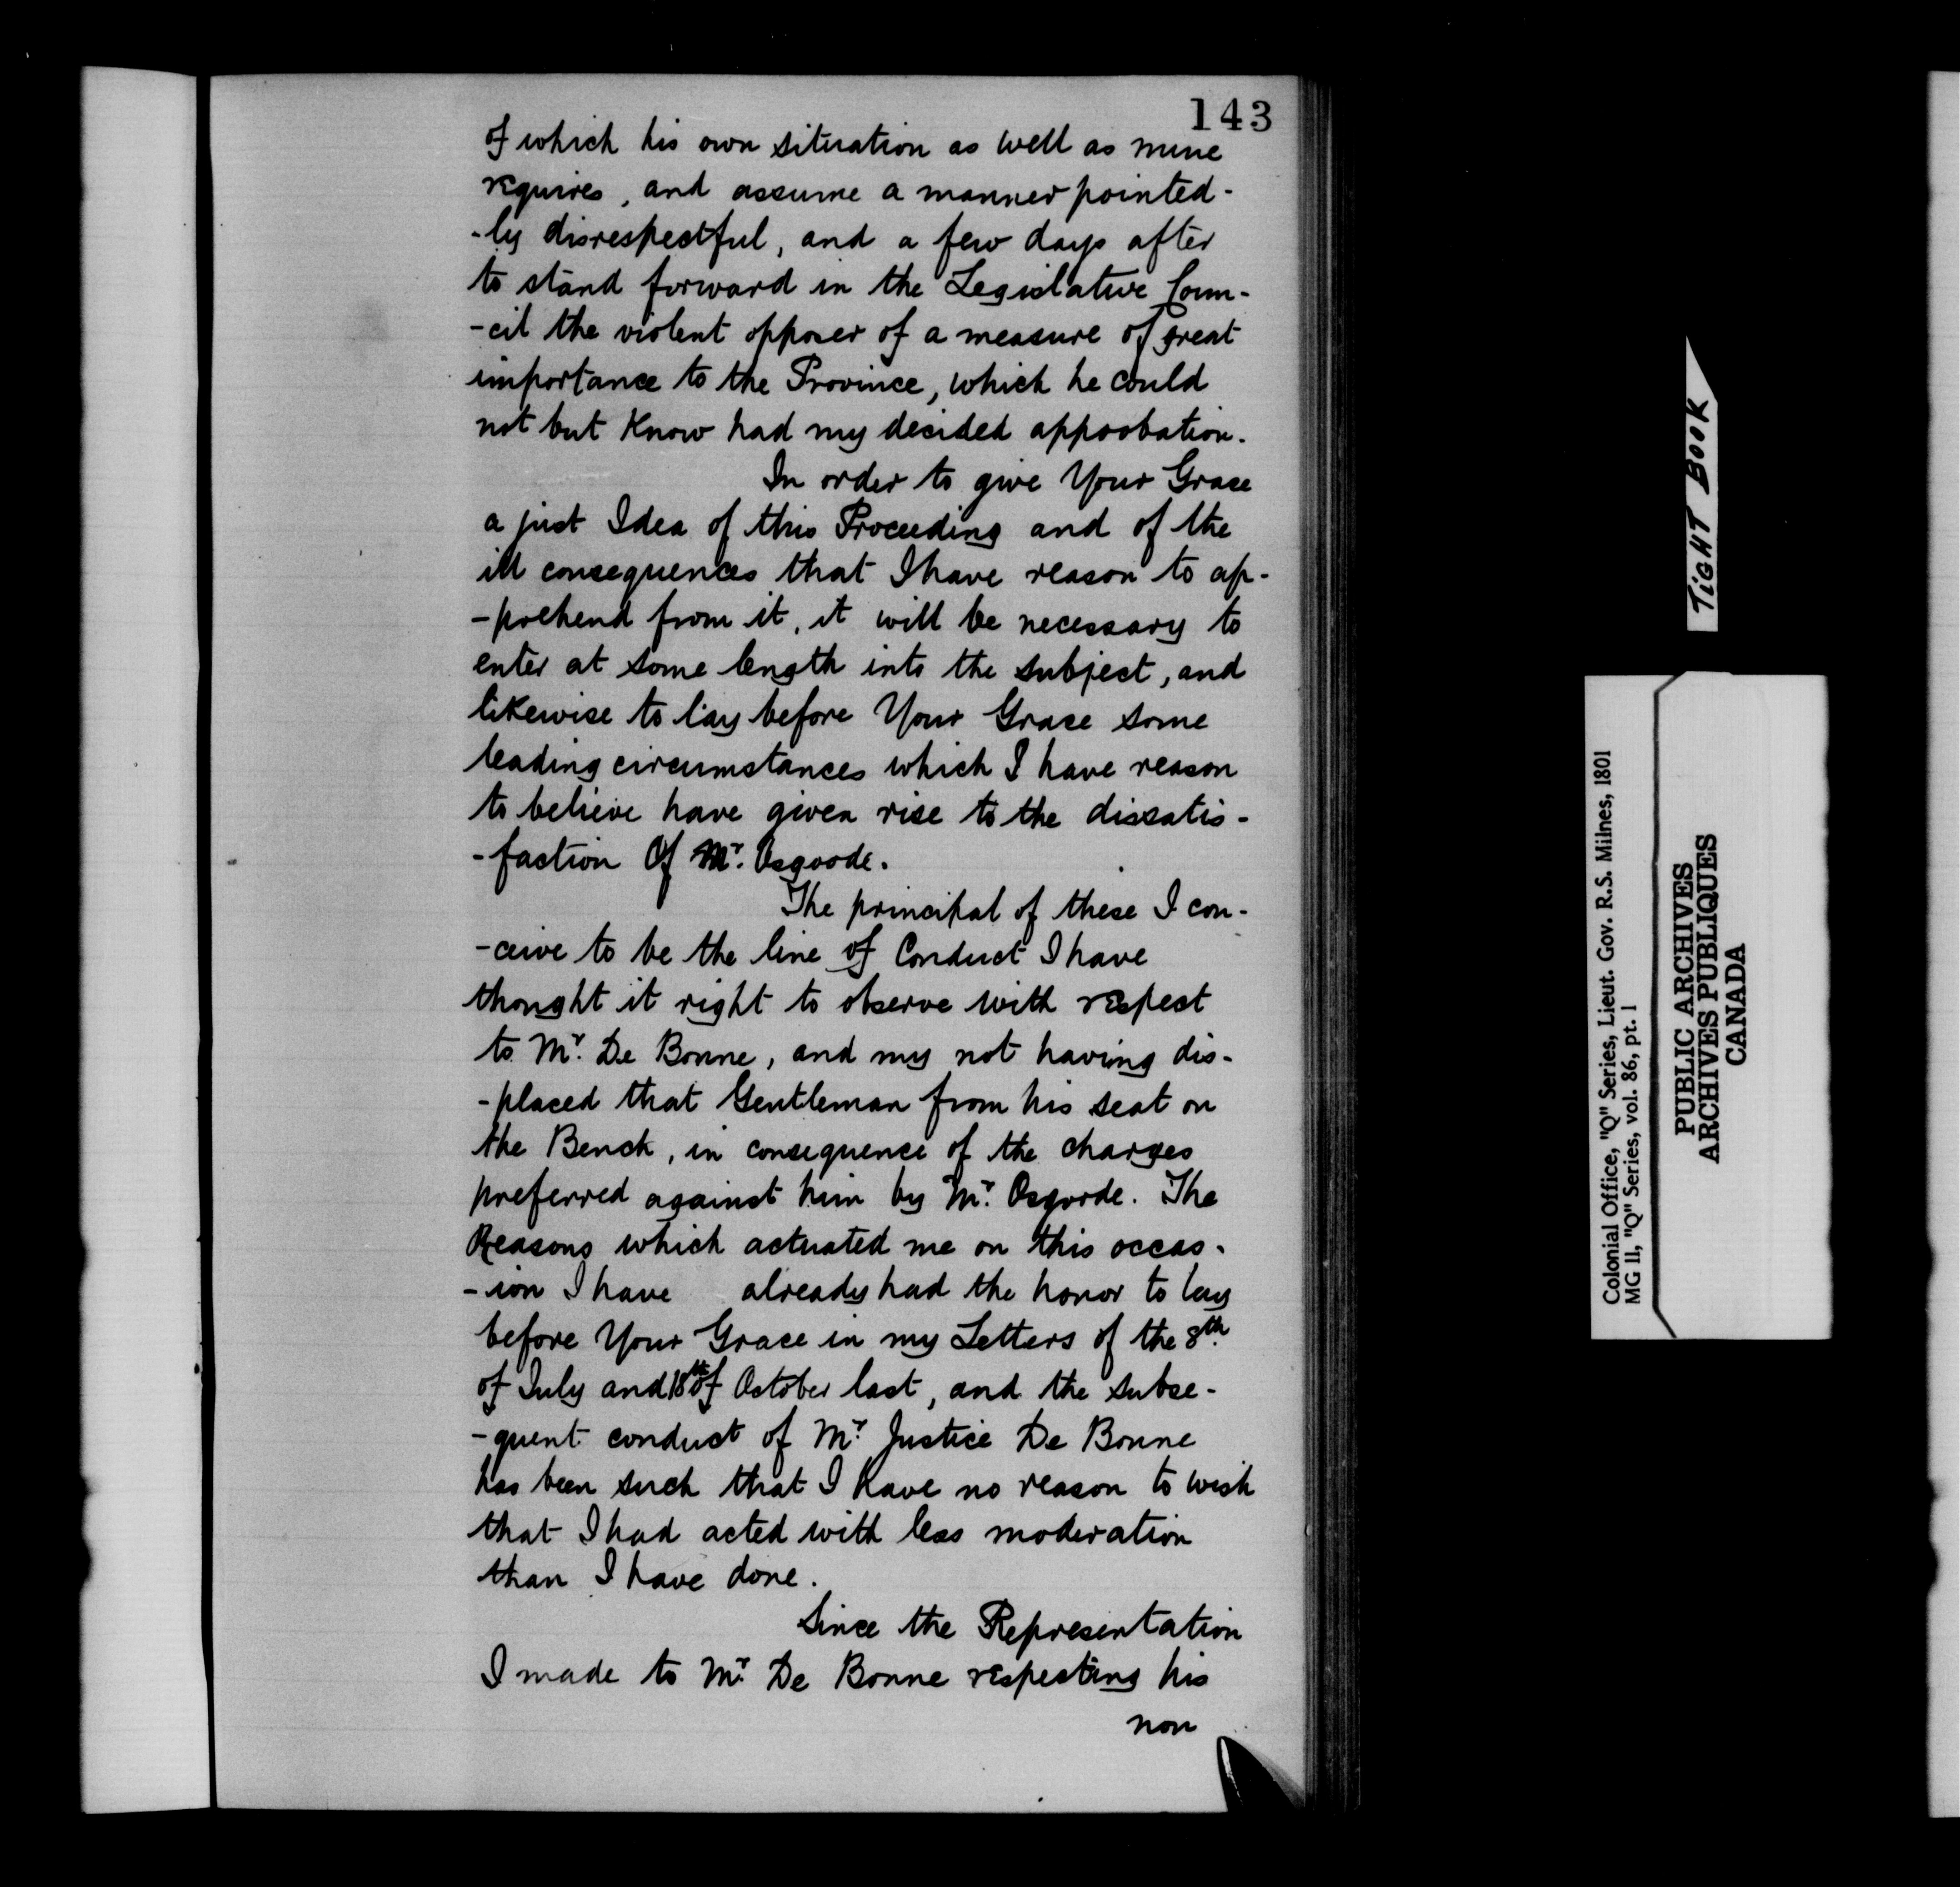 143
of which his own situation as well as mine
requires, and assume a manner pointed-
-ly disrespectful, and a few days after
to stand forward in the Legislative Coun-
-cil the violent opposer of a measure of great
importance to the Province, which he could
not but Know had my decided approbation.
In order to give Your Grace
a just Idea of this Proceeding and of the
ill consequences that I have reason to ap-
-prehend from it, it will be necessary to
enter at some length into the subject, and
likewise to lay before Your Grace some
leading circumstances which I have reason
to believe have given rise to the dissatis-
-faction Of Mr. Osgoode.
The principal of these I con-
-ceive to be the line of Conduct I have
thought it right to observe with respect
to Mr. De Bonne, and my not having dis-
-placed that Gentleman from his seat on
the Bench, in consequence of the charges
preferred against him by Mr. Osgoode. The
Reasons which actuated me on this occas-
-ion I have already had the honor to lay
before Your Grace in my Letters of the 8th
of July and 18th of October last, and the subse-
-quent conduct of Mr. Justice De Bonne
has been such that I have no reason to wish
that I had acted with less moderation
than I have done.
Since the Representation
I made to Mr. De Bonne respecting his
non
TIGHT BOOK
Colonial Office, "Q" Series, Lieut. Gov. R.S. Milnes, 1801
MG 11, "Q" Series, vol. 86, pt. 1
PUBLIC ARCHIVES
ARCHIVES PUBLIQUES
CANADA